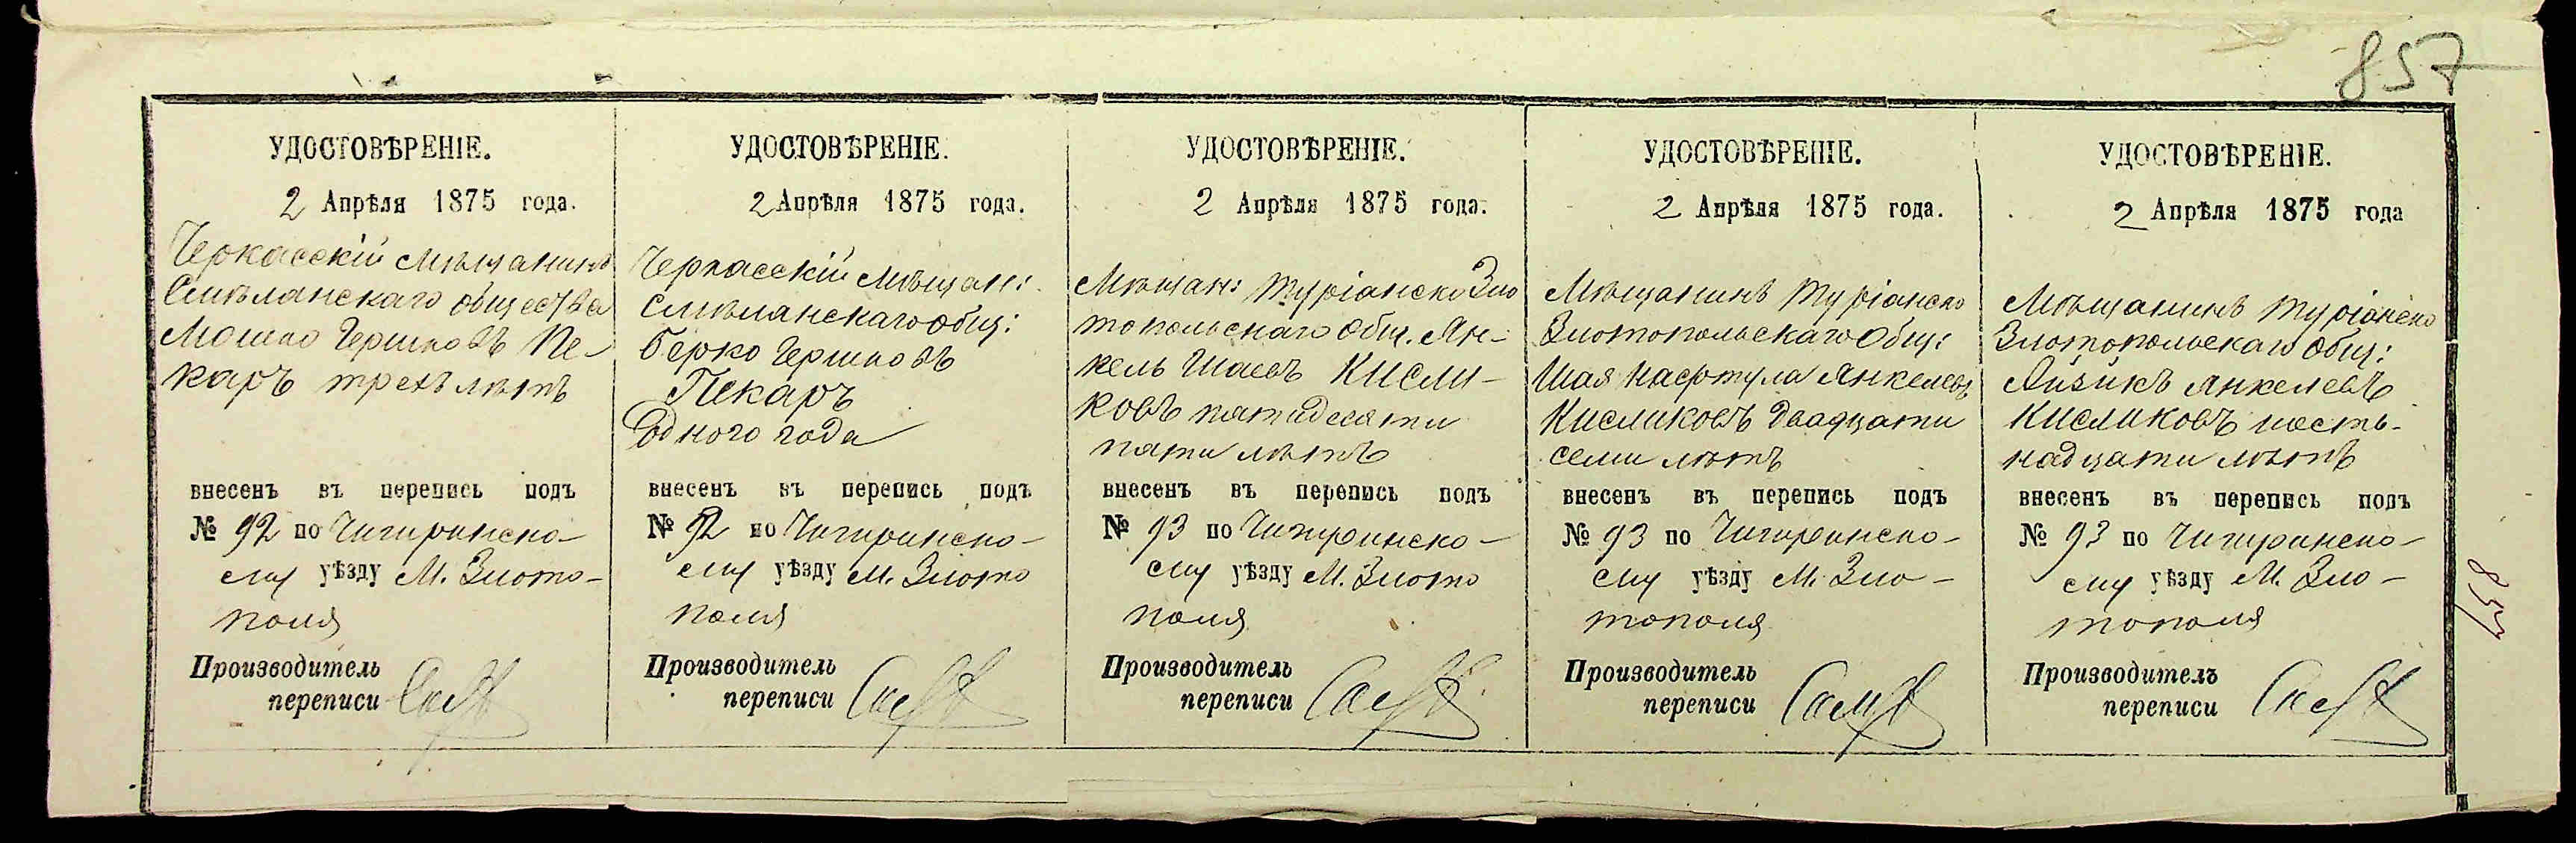 857
УДОСТОВѢРЕНІЕ.
2 Апрѣля 1875 года.
Черкасскій мѣщанинъ
Смѣлянскаго общества
Мошко Гершковъ Пе-
каръ трехъ лѣтъ
внесенъ въ перепись подъ
№ 92 по Чигиринско-
му уѣзду М. Злото-
поля
Производитель
переписи
УДОСТОВѢРЕНІЕ.
2 Апрѣля 1875 года.
Черкасскій мѣщан:
Смѣлянскаго общ:
Берко Гершковъ
Пекаръ
Одного года
внесенъ въ перепись подъ
№ 92 по Чигиринско-
му уѣзду М. Злото
поля
Производитель
переписи
УДОСТОВѢРЕНІЕ.
2 Апрѣля 1875 года.
Мѣщан: Туріанско Зло
топольскаго Общ. Ян-
кель Шаевъ Кисли-
ковъ пятидесяти
пяти лѣтъ
внесенъ въ перепись подъ
№ 93 по Чигиринско-
му уѣзду М. Злото
поля
Производитель
переписи
УДОСТОВѢРЕНІЕ.
2 Апрѣля 1875 года.
Мѣщанинъ Туріанско
Злотопольскаго Общ:
Шая Насртула Янкелевъ
Кисликовъ двадцати
семи лѣтъ
внесенъ въ перепись подъ
№ 93 по Чигиринско-
му уѣзду М. Зло-
тополя
Производитель
переписи
УДОСТОВѢРЕНІЕ.
2 Апрѣля 1875 года
Мѣщанинъ Туріанско
Злотопольскаго Общ:
Айзикъ Янкелевъ
Кисликовъ шесть-
надцати лѣтъ
внесенъ въ перепись подъ
№ 93 по Чигиринско-
му уѣзду М. Зло-
тополя
Производителъ
переписи